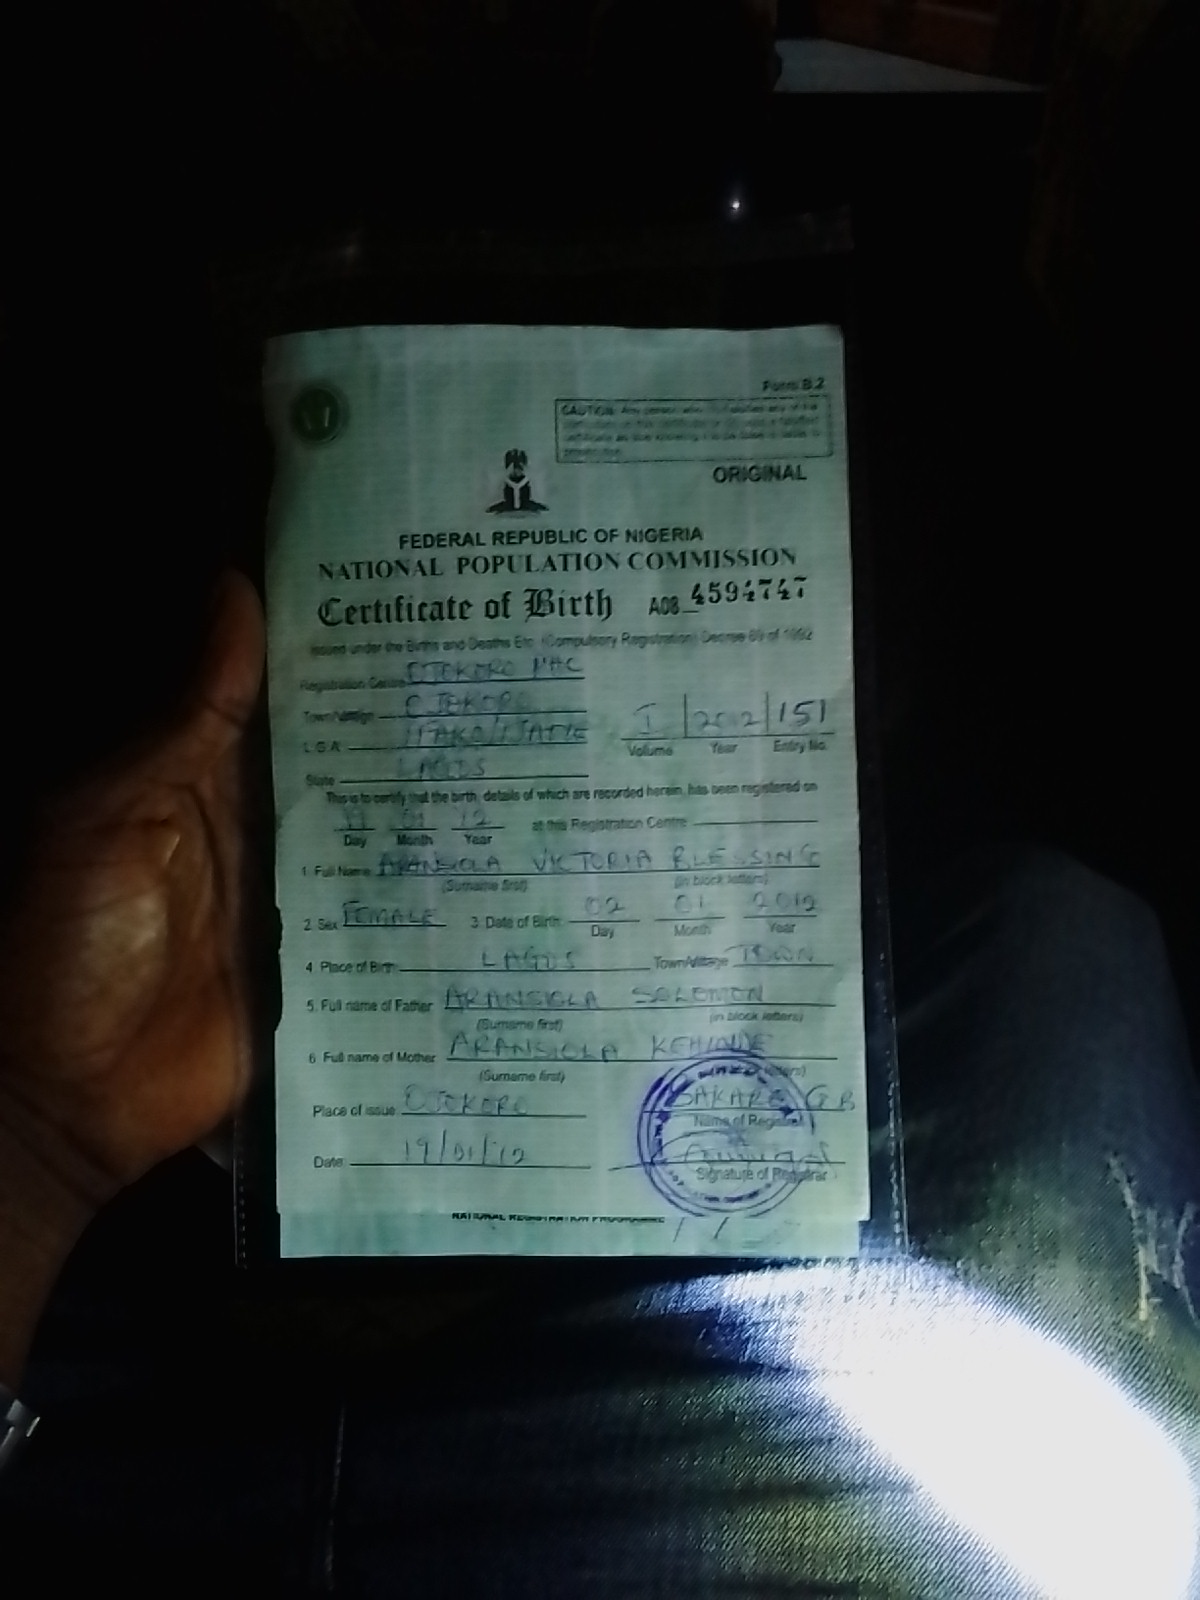 Form B.2
CAUTION: Any person who
ORIGINAL
FEDERAL REPUBLIC OF NIGERIA
NATIONAL POPULATION COMMISSION
Certificate of Birth A08 4594747
Issued under the Births and Deaths Etc. (Compulsory Registration) Decree 69 of 1992
Registration Centre OJOKORO PHC
Town/Village OJOKORO
L.G.A. IFAKO/IJAIYE
I 2012 151
Volume Year Entry No.
State LAGOS
This is to certify that the birth, details of which are recorded herein, has been registered on
01 12 at this Registration Centre
Day Month Year
1. Full Name ARANSIOLA VICTORIA BLESSING
(Surname first) (in block letters)
2. Sex FEMALE 3. Date of Birth 02 01 2012
Day Month Year
4. Place of Birth LAGOS Town/Village TOWN
5. Full name of Father ARANSIOLA SOLOMON
(Surname first) (in block letters)
6. Full name of Mother ARANSIOLA KEHINDE
(Surname first) letters)
Place of issue OJOKORO SAKARE G.B
Name of Registrar
Date 19/01/12
Signature of Registrar
NATIONAL REGISTRATION PROGRAMME